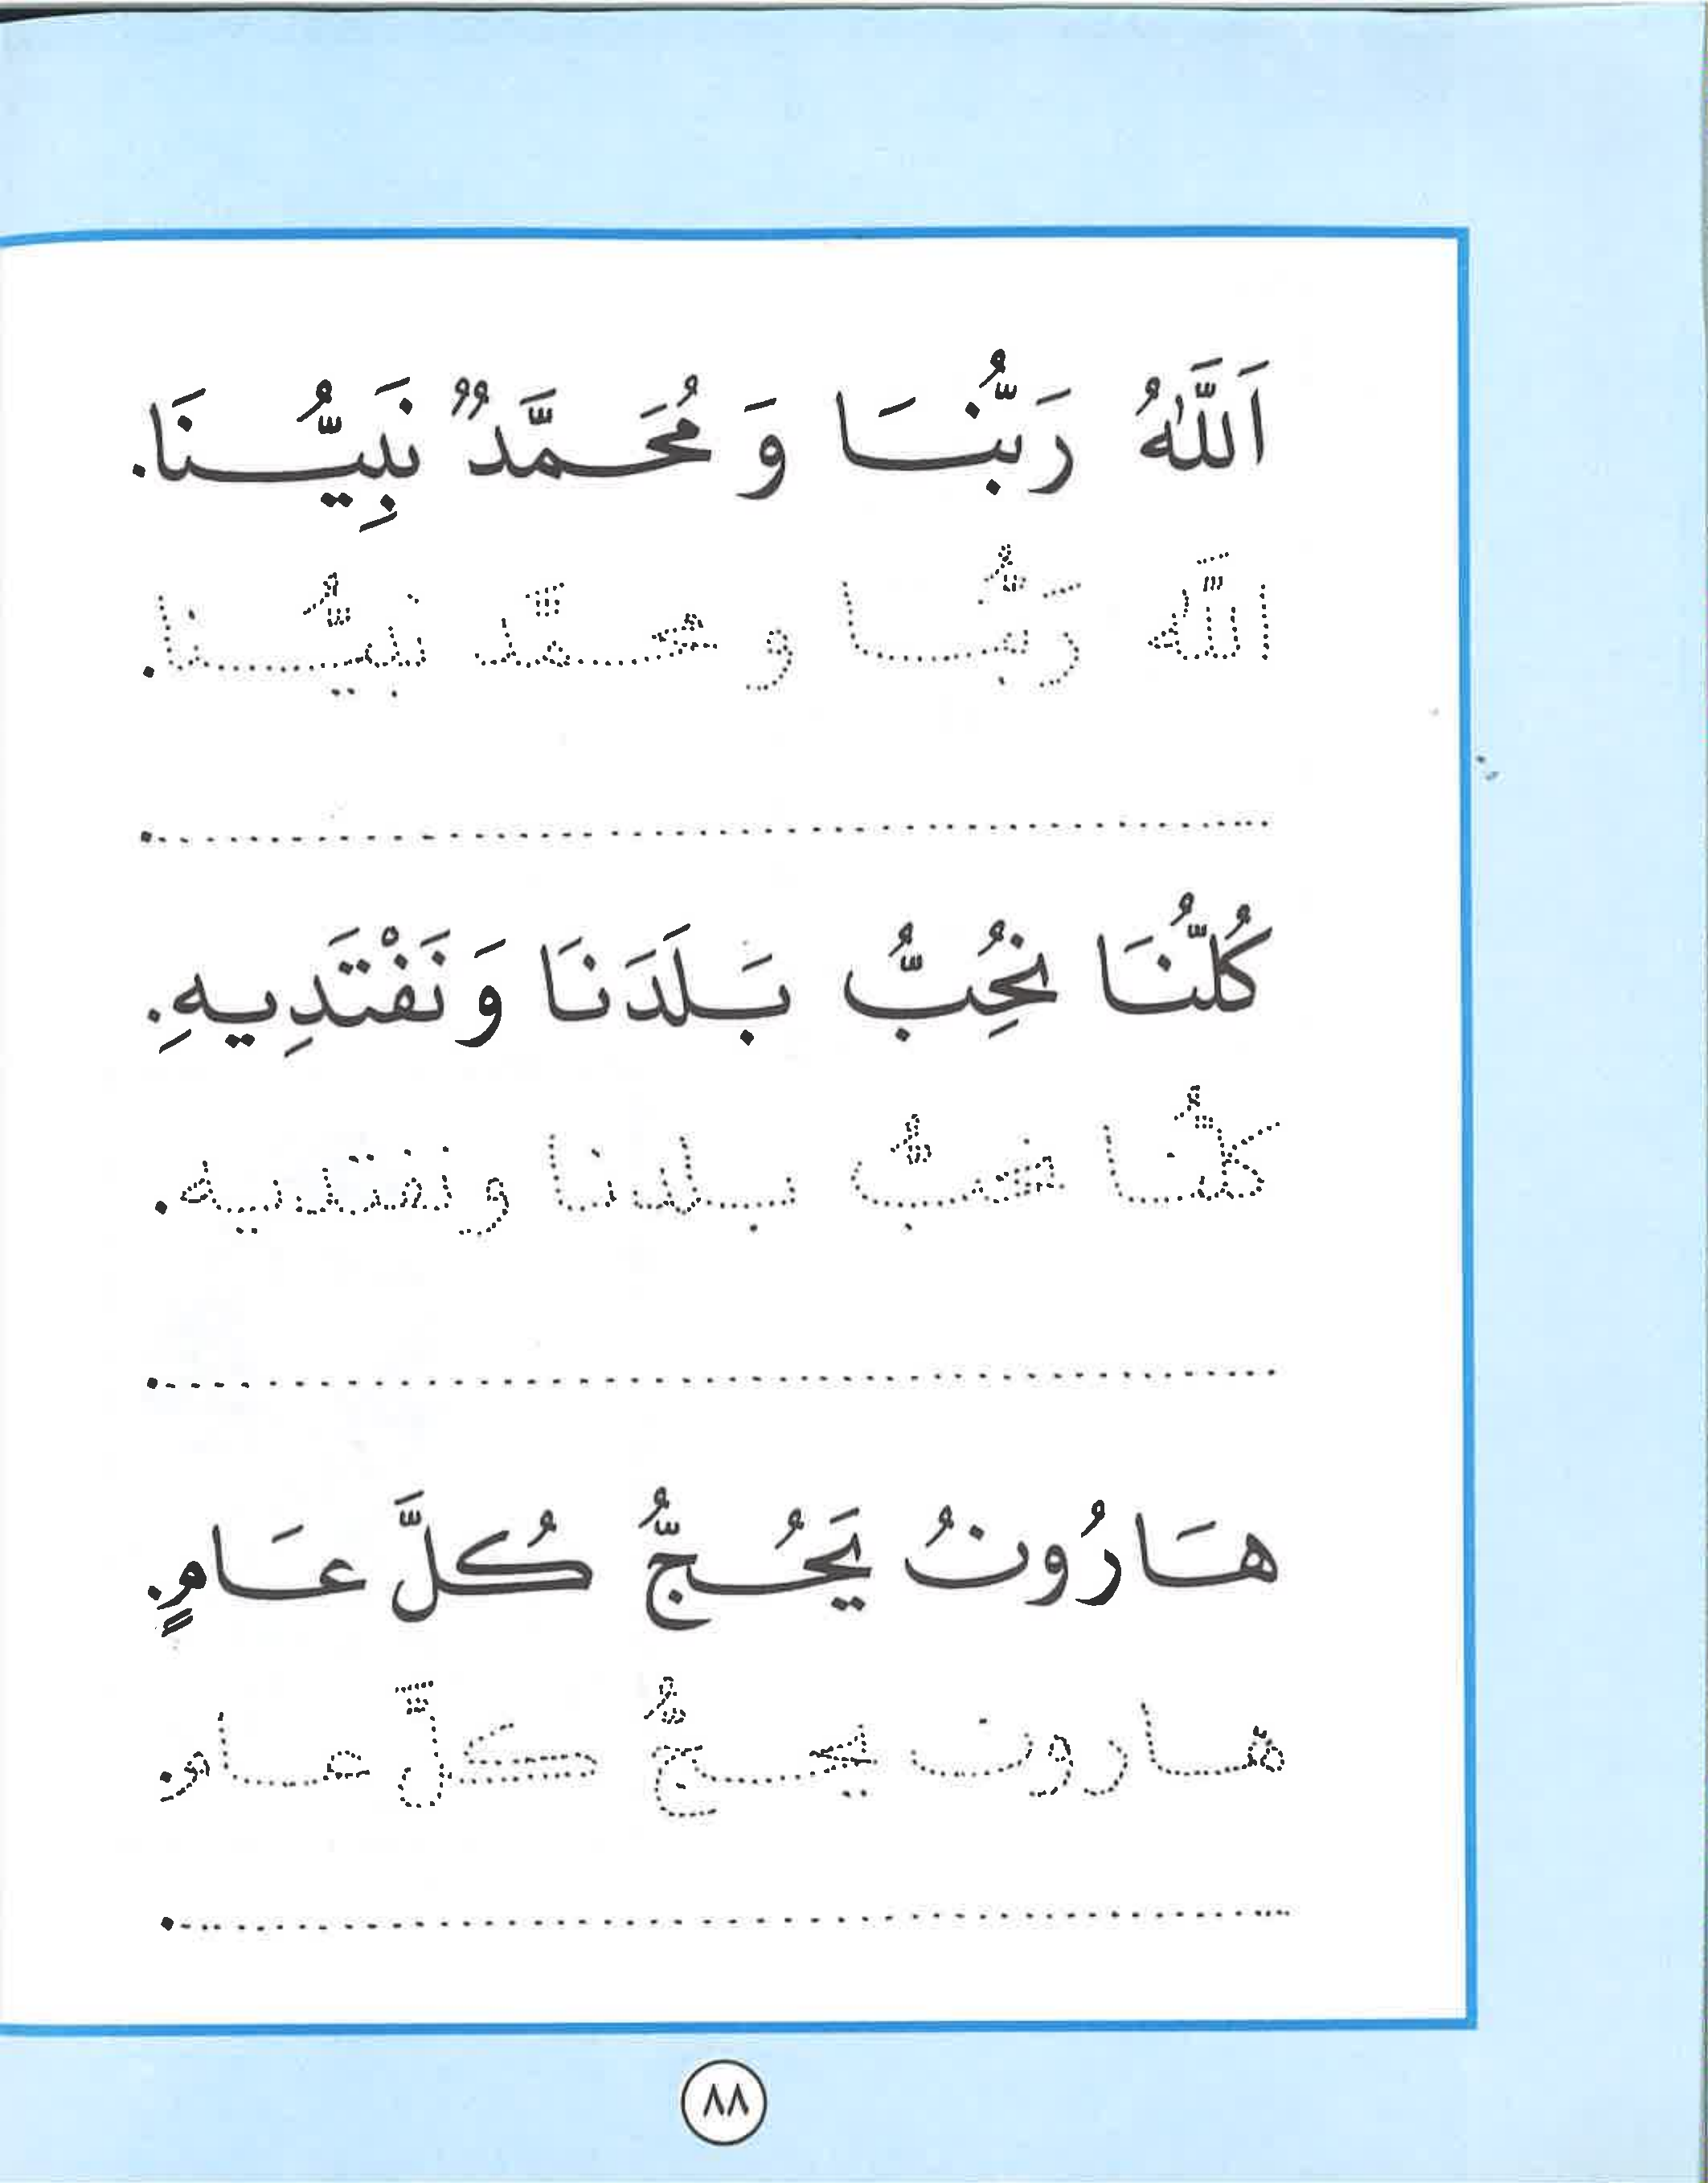 اَللّٰهُ رَبُّنَا وَ مُحَمَّدٌ نَبِيُّنَا.
اللَّه رَبُّنا و محمَّد نبيُّنا.
كُلُّنَا نُحِبُّ بَلَدَنَا وَ نَفْتَدِيهِ.
كلُّنا نحبُّ بلدنا ونفتديه.
هَارُونُ يَحُجُّ كُلَّ عَامٍ.
هارون يحجُّ كلَّ عام.
٨٨